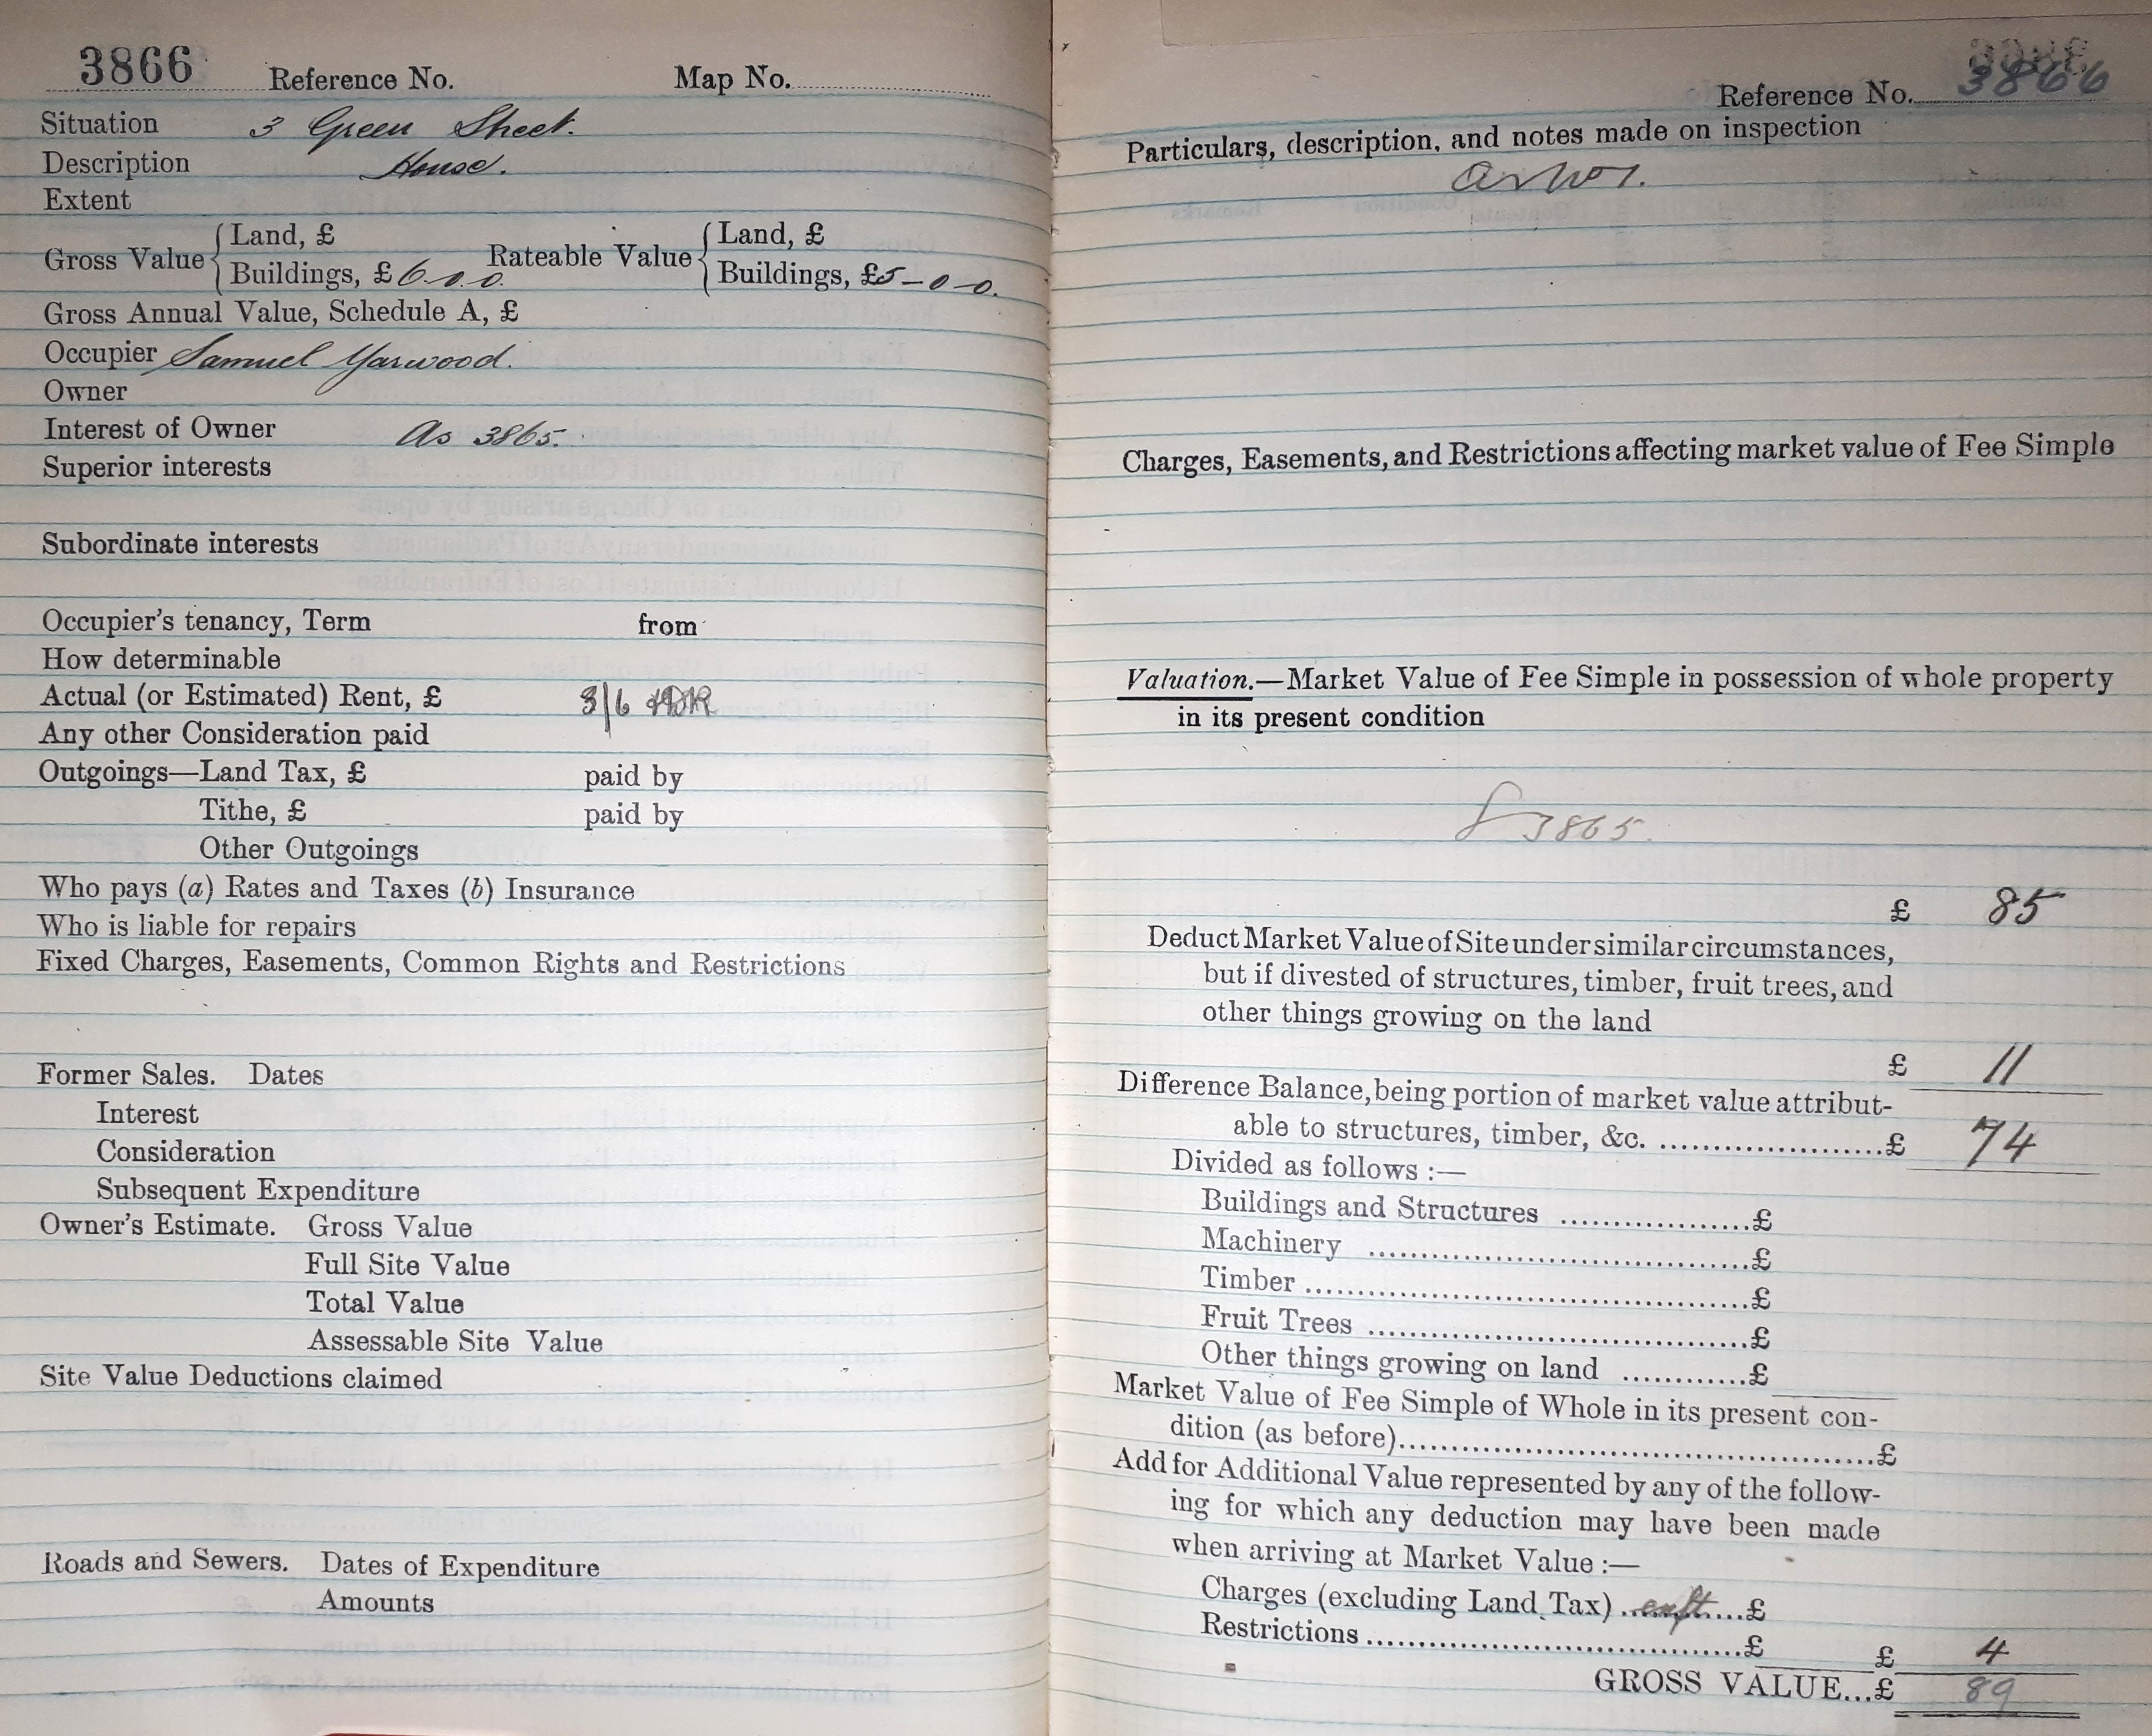 3866 Reference No. Map No.
Situation 3 Green Street.
Description House.
Extent
Gross Value { Land, £ Rateable Value { Land, £
Buildings, £ 6-0-0. Buildings, £5-0-0.
Gross Annual Value, Schedule A, £
Occupier Samuel Yarwood.
Owner
Interest of Owner As 3865.
Superior interests
Subordinate interests
Occupier's tenancy, Term from
How determinable
Actual (or Estimated) Rent, £ 3/6
Any other Consideration paid
Outgoings—Land Tax, £ paid by
Tithe, £ paid by
Other Outgoings
Who pays (a) Rates and Taxes (b) Insurance
Who is liable for repairs
Fixed Charges, Easements, Common Rights and Restrictions
Former Sales. Dates
Interest
Consideration
Subsequent Expenditure
Owner's Estimate. Gross Value
Full Site Value
Total Value
Assessable Site Value
Site Value Deductions claimed
Roads and Sewers. Dates of Expenditure
Amounts
Reference No. 3866
Particulars, description, and notes made on inspection
Charges, Easements, and Restrictions affecting market value of Fee Simple
Valuation.—Market Value of Fee Simple in possession of whole property
in its present condition
3865.
£ 85
Deduct Market Value of Site under similar circumstances,
but if divested of structures, timber, fruit trees, and
other things growing on the land
£ 11
Difference Balance, being portion of market value attribut-
able to structures, timber, &c. ........................£ 74
Divided as follows :—
Buildings and Structures ...................£
Machinery .......................................£
Timber .............................................£
Fruit Trees .......................................£
Other things growing on land ............£
Market Value of Fee Simple of Whole in its present con-
dition (as before)..................................................£
Add for Additional Value represented by any of the follow-
ing for which any deduction may have been made
when arriving at Market Value :—
Charges (excluding Land Tax) ............£
Restrictions .......................................£ £ 4
GROSS VALUE...£ 89